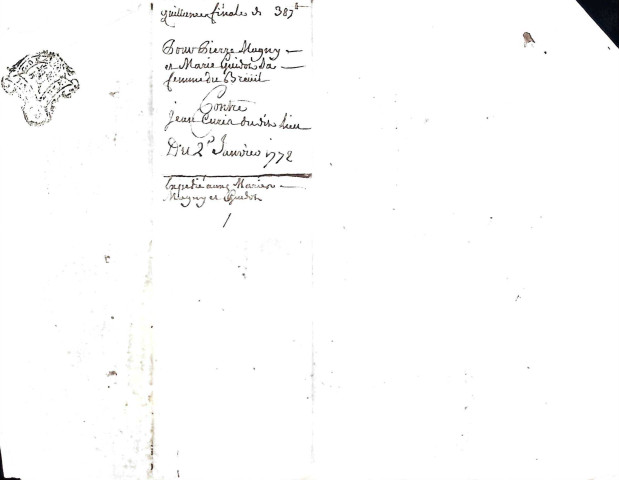 Quittance finale de 387ᵗᵗ
Pour Pierre Magny
et Marie Guidon Sa
femme du Breüil
Contre
Jean Curin dudit lieu
Du 2ᵉ Janvier 1772
Expedié aux Mariés
Magny et Guidon